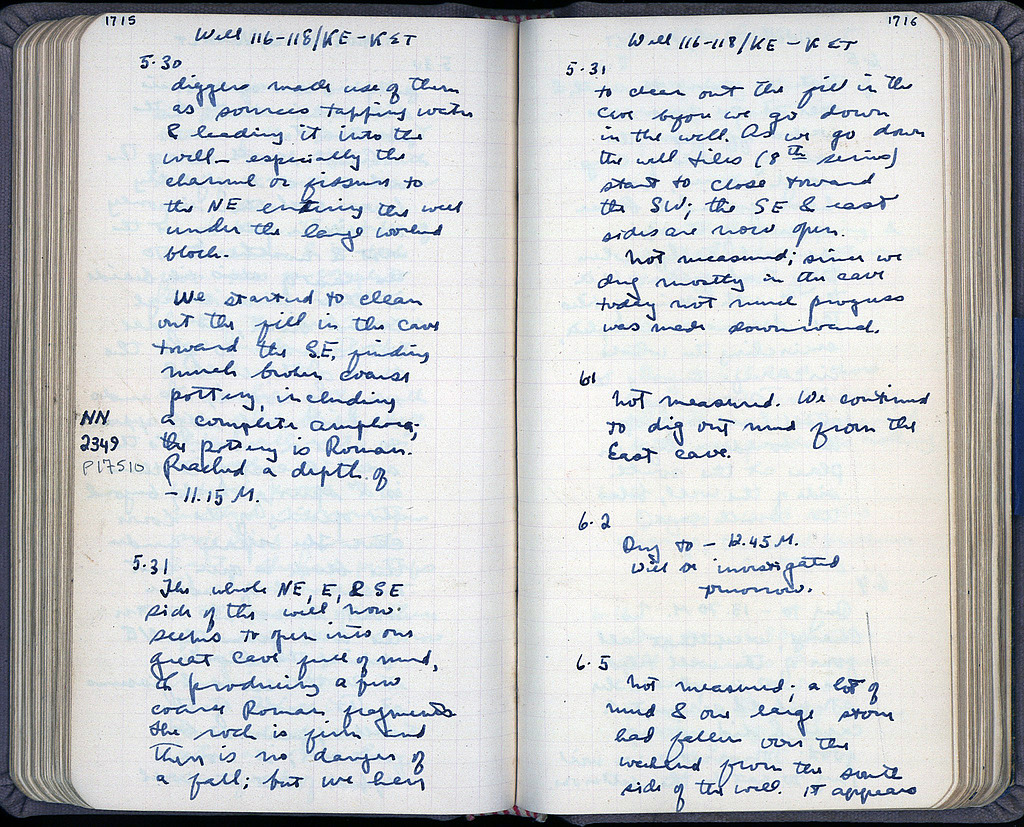 1715
Well 116-118/KE-KΣT
5.30
diggers made use of them
as sources tapping water
& leading it into the
well – especially the
channel or fissure to
the NE entering the well
under the large worked
block.
We started to clean
out the fill in the cave
toward the SE, finding
much broken coarse
pottery, including
NN 2349 P17510
a complete amphora;
the pottery is Roman.
Reached a depth of
-11.15 M.
5.31
The whole NE, E, & SE
side of the well now
seems to open into one
great cave full of mud,
producing a few
coarse Roman fragments
The rock is firm and
there is no danger of
a fall; but we have
1716
Well 116-118/KE-KΣT
5.31
to clean out the fill in the
cave before we go down
in the well. As we go down
the well tiles (8th series)
start to close toward
the SW; the SE & east
sides are now open.
Not measured; since we
dug mostly in the cave
today not much progress
was made downward.
6.1
Not measured. We continued
to dig out mud from the
East cave.
6.2
Dug to – 12.45 M.
Will be investigated
tomorrow.
6.5
Not measured; a lot of
mud & one large stone
had fallen over the
weekend from the south
side of the well. It appears